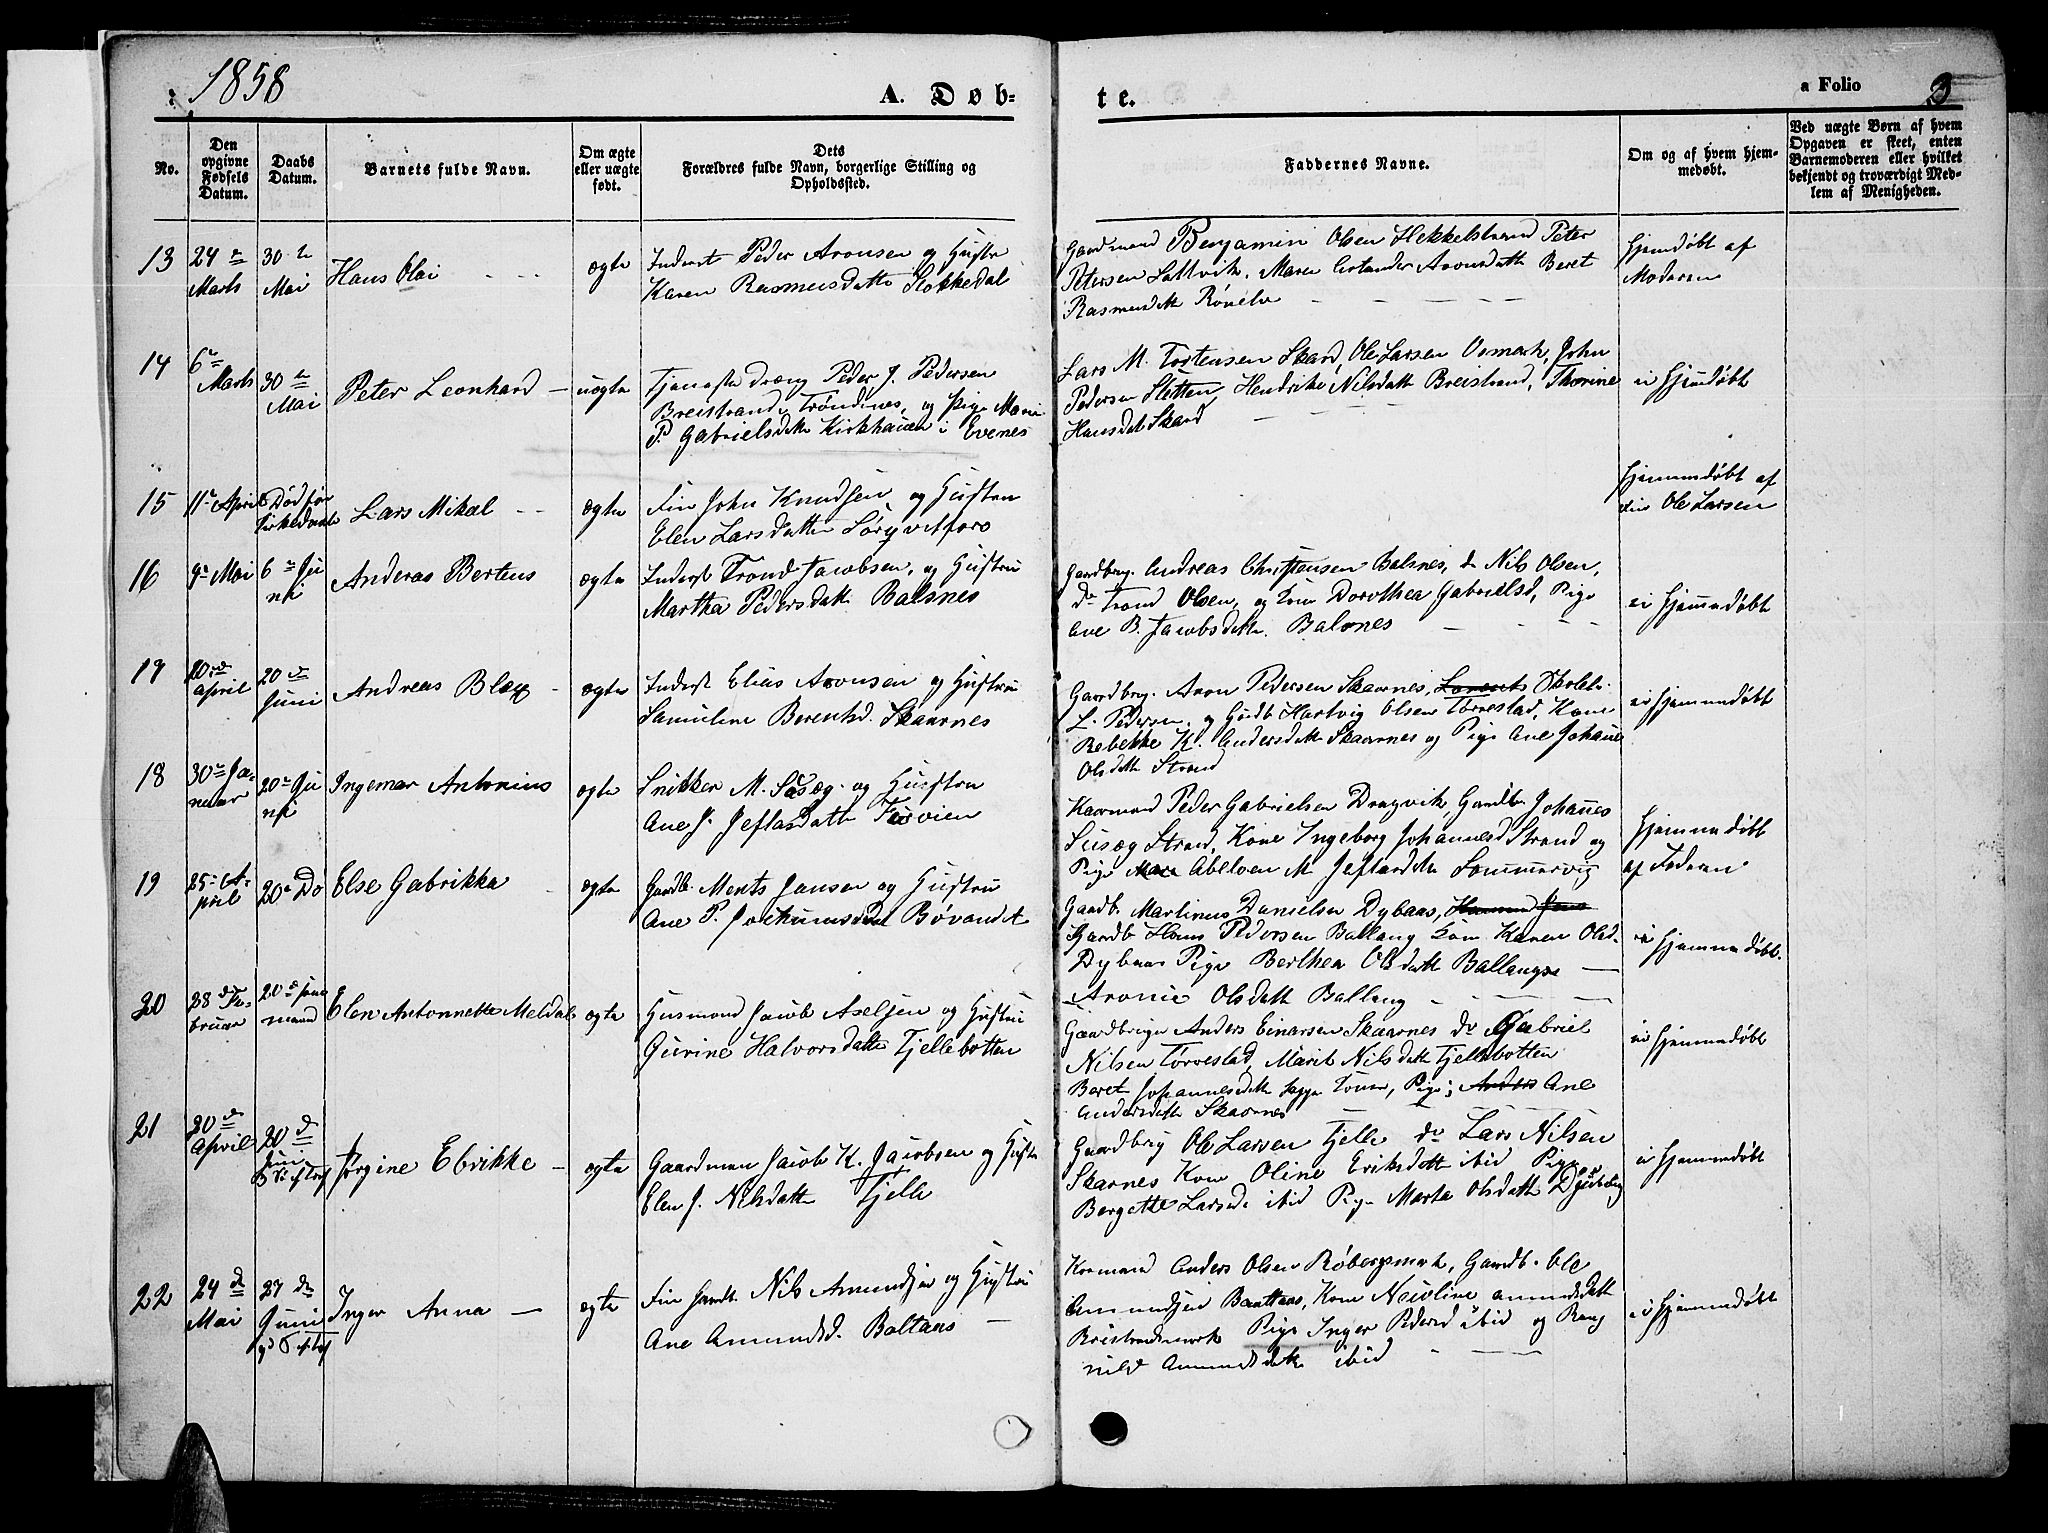 1858
A. Døb=
te.
a Folio
No.
Den opgivne Fødsels Datum.
Daabs Datum.
Barnets fulde Navn.
Om ægte eller uægte født.
Dets Forældres fulde Navn, borgerlige Stilling og Opholdssted.
Faddernes Navne.
Om og af hvem hjem-
medøbt.
Ved uægte Børn af hvem
Opgaven er skeet, enten
Barnemoderen eller hvilket
bekjendt og troværdigt Med-
lem af Menigheden.
13
24 Marts
30 Mai
Hans Olai
ægte
Inderst Peder Aronsen og Hustru
Karen Rasmusdatter
Gaardmand Benjamin Olsen Hekkelstrand Peter
Petersen Maren Aronsdatt Beret
Rasmusdatt
Hjemdøbt af
Moderen
14
6 Marts
30 Mai
Peter Leonhard
uægte
Tjenestedreng Peder J. Pedersen
Breistrand, Trondenes, og Pige
P. Gabrielsdatt i Evenes
Lars M. Tostensen Skard, Ole Larsen Osmark, John
Pedersen Sletten, Hendrike Nilsdatt Breistrand, Thorine
Hansdatt Skard
ei Hjemdøbt
15
11 April
Død før
Lars Mikal
ægte
Fin John Knudsen og Hustru
Elen Larsdatter
Hjemmedøbt
af
Ole Larsen
16
9 Mai
6 Ju
ni
Anderas Berteus
ægte
Inderst Trond Jacobsen, og Hustru
Martha Pedersdatt Balsnes
Gaardbrug. Andreas Christensen Balsnes, do Nils Olsen,
do Trond Olsen, og Kone Dorothea Gabrielsd, Pige
Ane B. Jacobsdatt. Balsnes
ei Hjemmedøbt
17
20 April
20 Juni
Andreas Blæx
ægte
Inderst Elias Aronsen og Hustru
Samuline Berentsd. Skaarnes
Gaardbrug. Aron Pedersen Skaarnes, Lorents
L. Pedersen, og Hartvig Olsen Tørrestad, Kone
Rebekke K. Andersdatt Skaarnes og Pige Ane Johanne
Olsdatt Strand
ei Hjemmedøbt
18
30 Ja-
nuar
20 Ju
ni
Ingemar Antonius
ægte
Snikker M. Susæg og Hustru
Ane J. Jeftasdatt
Kaarmand Peder Gabrielsen Dragvik, Gaardb. Johannes
Susæg Strand, Kone Ingeborg Johannesd Strand og
Pige Abeloen M. Jeftasdatt Sommervig
Hjemmedøbt
af Faderen
19
25 A-
pril
20 Do
Else Gabrikka
ægte
Gaardb. Ments Jansen og Hustru
Ane P. Jochumsdatt Bøvandet
Gaardb. Martinus Danielsen Dybaas,
Gaardb Hans Pedersen Ballang Kone Karen Olsd.
Dybaas Pige Berthea Olsdatt Ballangen
Aronie Olsdatt Ballang
ei Hjemmedøbt.
20
28 Fe-
bruar
20
Elen Antonnette Meldal
ægte
Husmand Jacob Axelsen og Hustru
Gurine Halvorsdatt Tjellebotten
Gaardbruger Anders Einarsen Skaarnes do Gabriel
Nilsen Tørrestad, Marit Nilsdatt Tjellebotten
Beret Johannesdatt Kone, Pige; Anders Ane
Andersdatt Skaarnes
ei Hjemmedøbt
21
20 April
20 Juni
Jørgine Elvikke
ægte
Gaardman Jacob K. Jacobsen og Hustru
Elen J. Nilsdatt Tjelle
Gaardbrug Ole Larsen Tjelle do Lars Nilsen
Skarnes Kone Oline Eriksdatt ibid Pige
Bergette Larsd. ibid Pige Marta Olsdatt
ei Hjemmedøbt
22
24 Mai
27 Juni
Inger Anna
ægte
Fin Gaardb. Nils Amundsen og Hustru
Ane Amundsd. Baltaas
Kaarmand Anders Olsen Robergsmark, Gaardb. Ole
Amundsen Kone Amundsdatt
Breistrandsmark Pige Inger Pedersd ibid og Rang
nild Amundsdatt ibid
ei Hjemmedøbt